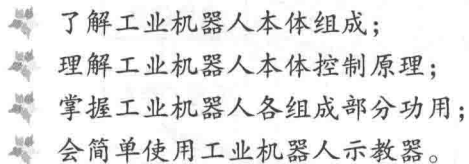 了解工业机器人本体组成；
理解工业机器人本体控制原理；
掌握工业机器人各组成部分功用；
会简单使用工业机器人示教器。